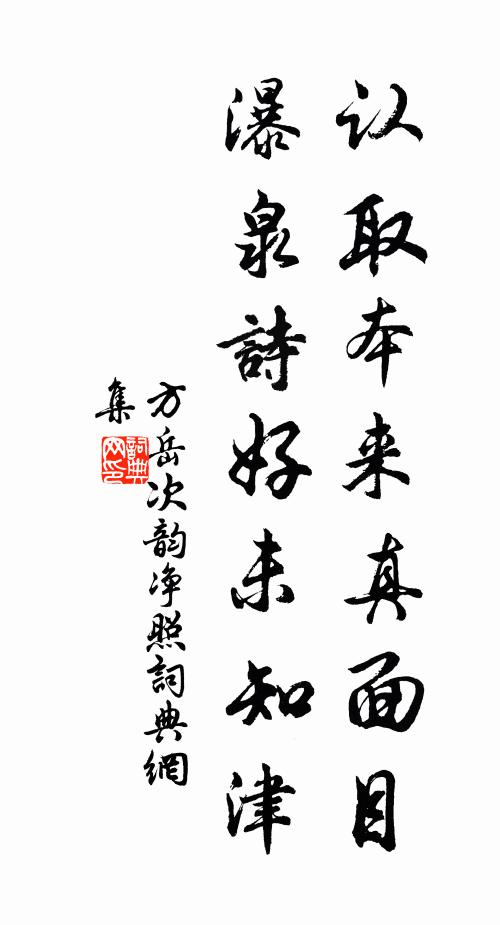 认取本来真面目
瀑泉詩好未知津
方岳次韵净照詞典網
集
詞典
网印